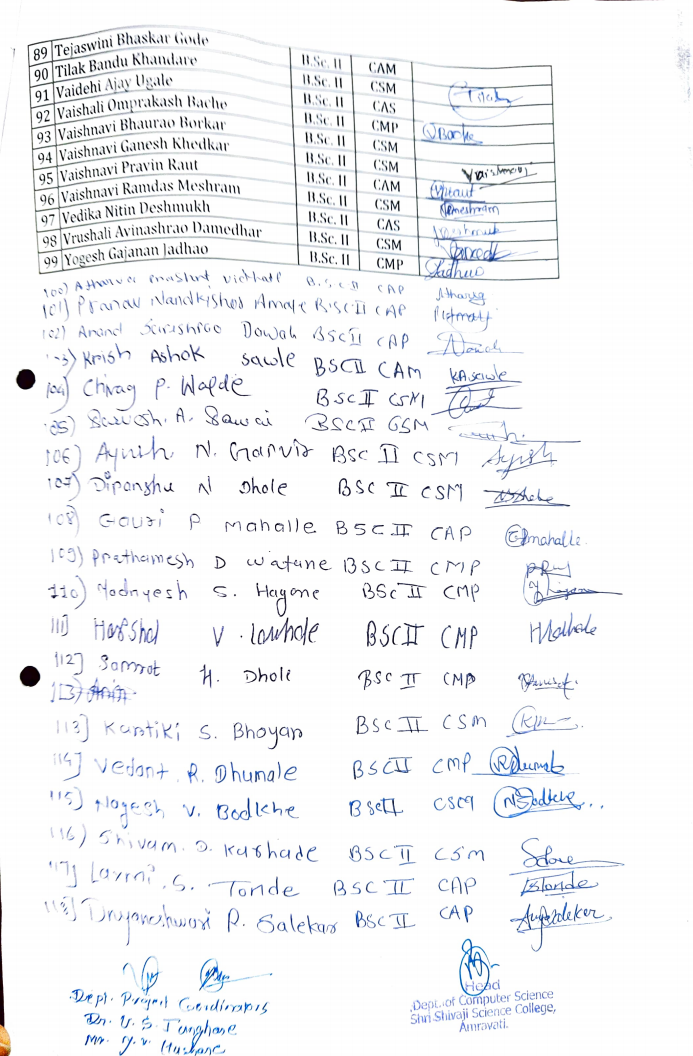 89 Tejaswini Bhaskar Gode B.Sc. II CAM
90 Tilak Bandu Khandare B.Sc. II CSM Tilak
91 Vaidehi Ajay Ugale B.Sc. II CAS
92 Vaishali Omprakash Bache B.Sc. II CMP
93 Vaishnavi Bhaurao Borkar B.Sc. II CSM
94 Vaishnavi Ganesh Khedkar B.Sc. II CSM Vaishnavi
95 Vaishnavi Pravin Raut B.Sc. II CAM
96 Vaishnavi Ramdas Meshram B.Sc. II CSM
97 Vedika Nitin Deshmukh B.Sc. II CAS
98 Vrushali Avinashrao Damedhar B.Sc. II CSM
99 Yogesh Gajanan Jadhao B.Sc. II CMP
100) B.SC II CAP
101) Pranav Nandkishor B.SC II CAP
102) Anand BSC II CAP
Krish Ashok sawle BSC II CAM KAsawle
104) Chirag P. Walde BSC II CSM
A. Sawai BSC II CSM
106) Ayush N. BSC II CSM Ayush
107) Dipanshu N Dhole BSC II CSM
108) Gouri P Mahalle BSC II CAP GPmahalle
109) Prathamesh D Watane BSC II CMP
110) S. Hagone BSC II CMP
111] Harshal V. BSC II CMP
112] Samrat H. Dhole BSC II CMP
113)
113] Kartiki S. Bhoyar BSC II CSM
114] Vedant R. Dhumale BSC II CMP
115] Nagesh V. Bodkhe BSC II
116) Shivam. Karhade BSC II CSM
117] Laxmi. S. Tonde BSC II CAP
118] Dnyaneshwari P. Salekar BSC II CAP
Dept. Project Cordinators
Dr. V. S. Tunghare
Head
Dept. of Computer Science
Shri Shivaji Science College,
Amravati.